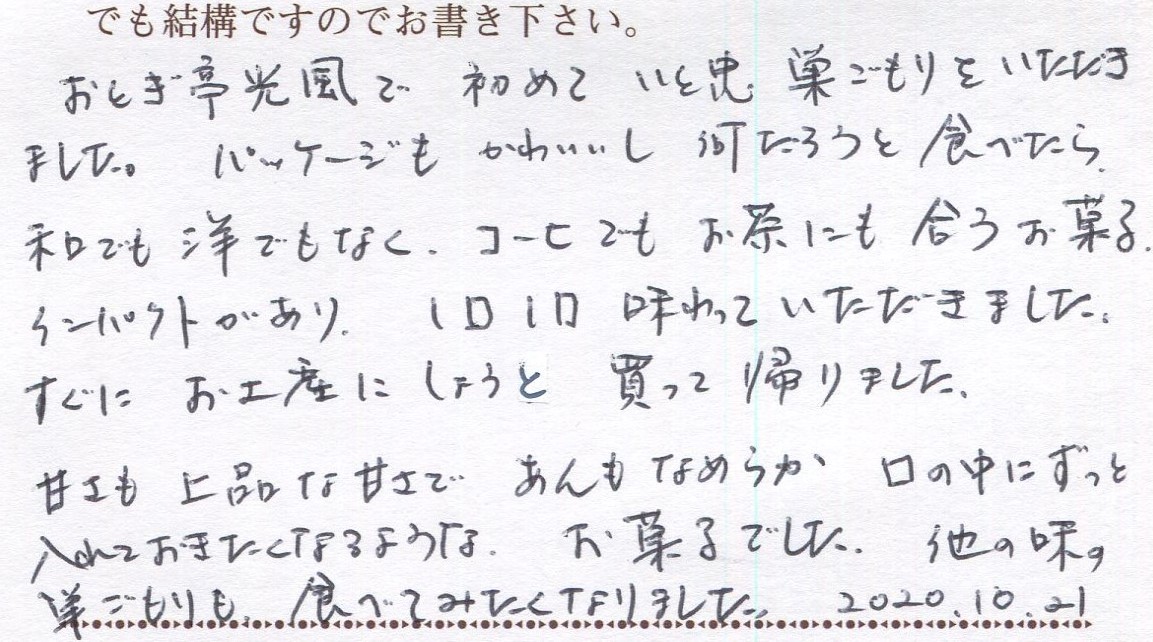 でも結構ですのでお書き下さい。
おとぎ亭光風で 初めて いと忠 巣ごもりをいただき
ました。 パッケージも かわいいし 何だろうと 食べたら、
和でも 洋でもなく、コーヒでも お茶にも 合うお菓子、
インパクトがあり、 1口1口 味わっていただきました。
すぐに お土産に しようと 買って帰りました、
甘さも 上品な甘さで あんもなめらか 口の中にずっと
入れておきたくなるような、 お菓子でした。 他の味の
巣ごもりも、食べてみたくなりました。 2020.10.21